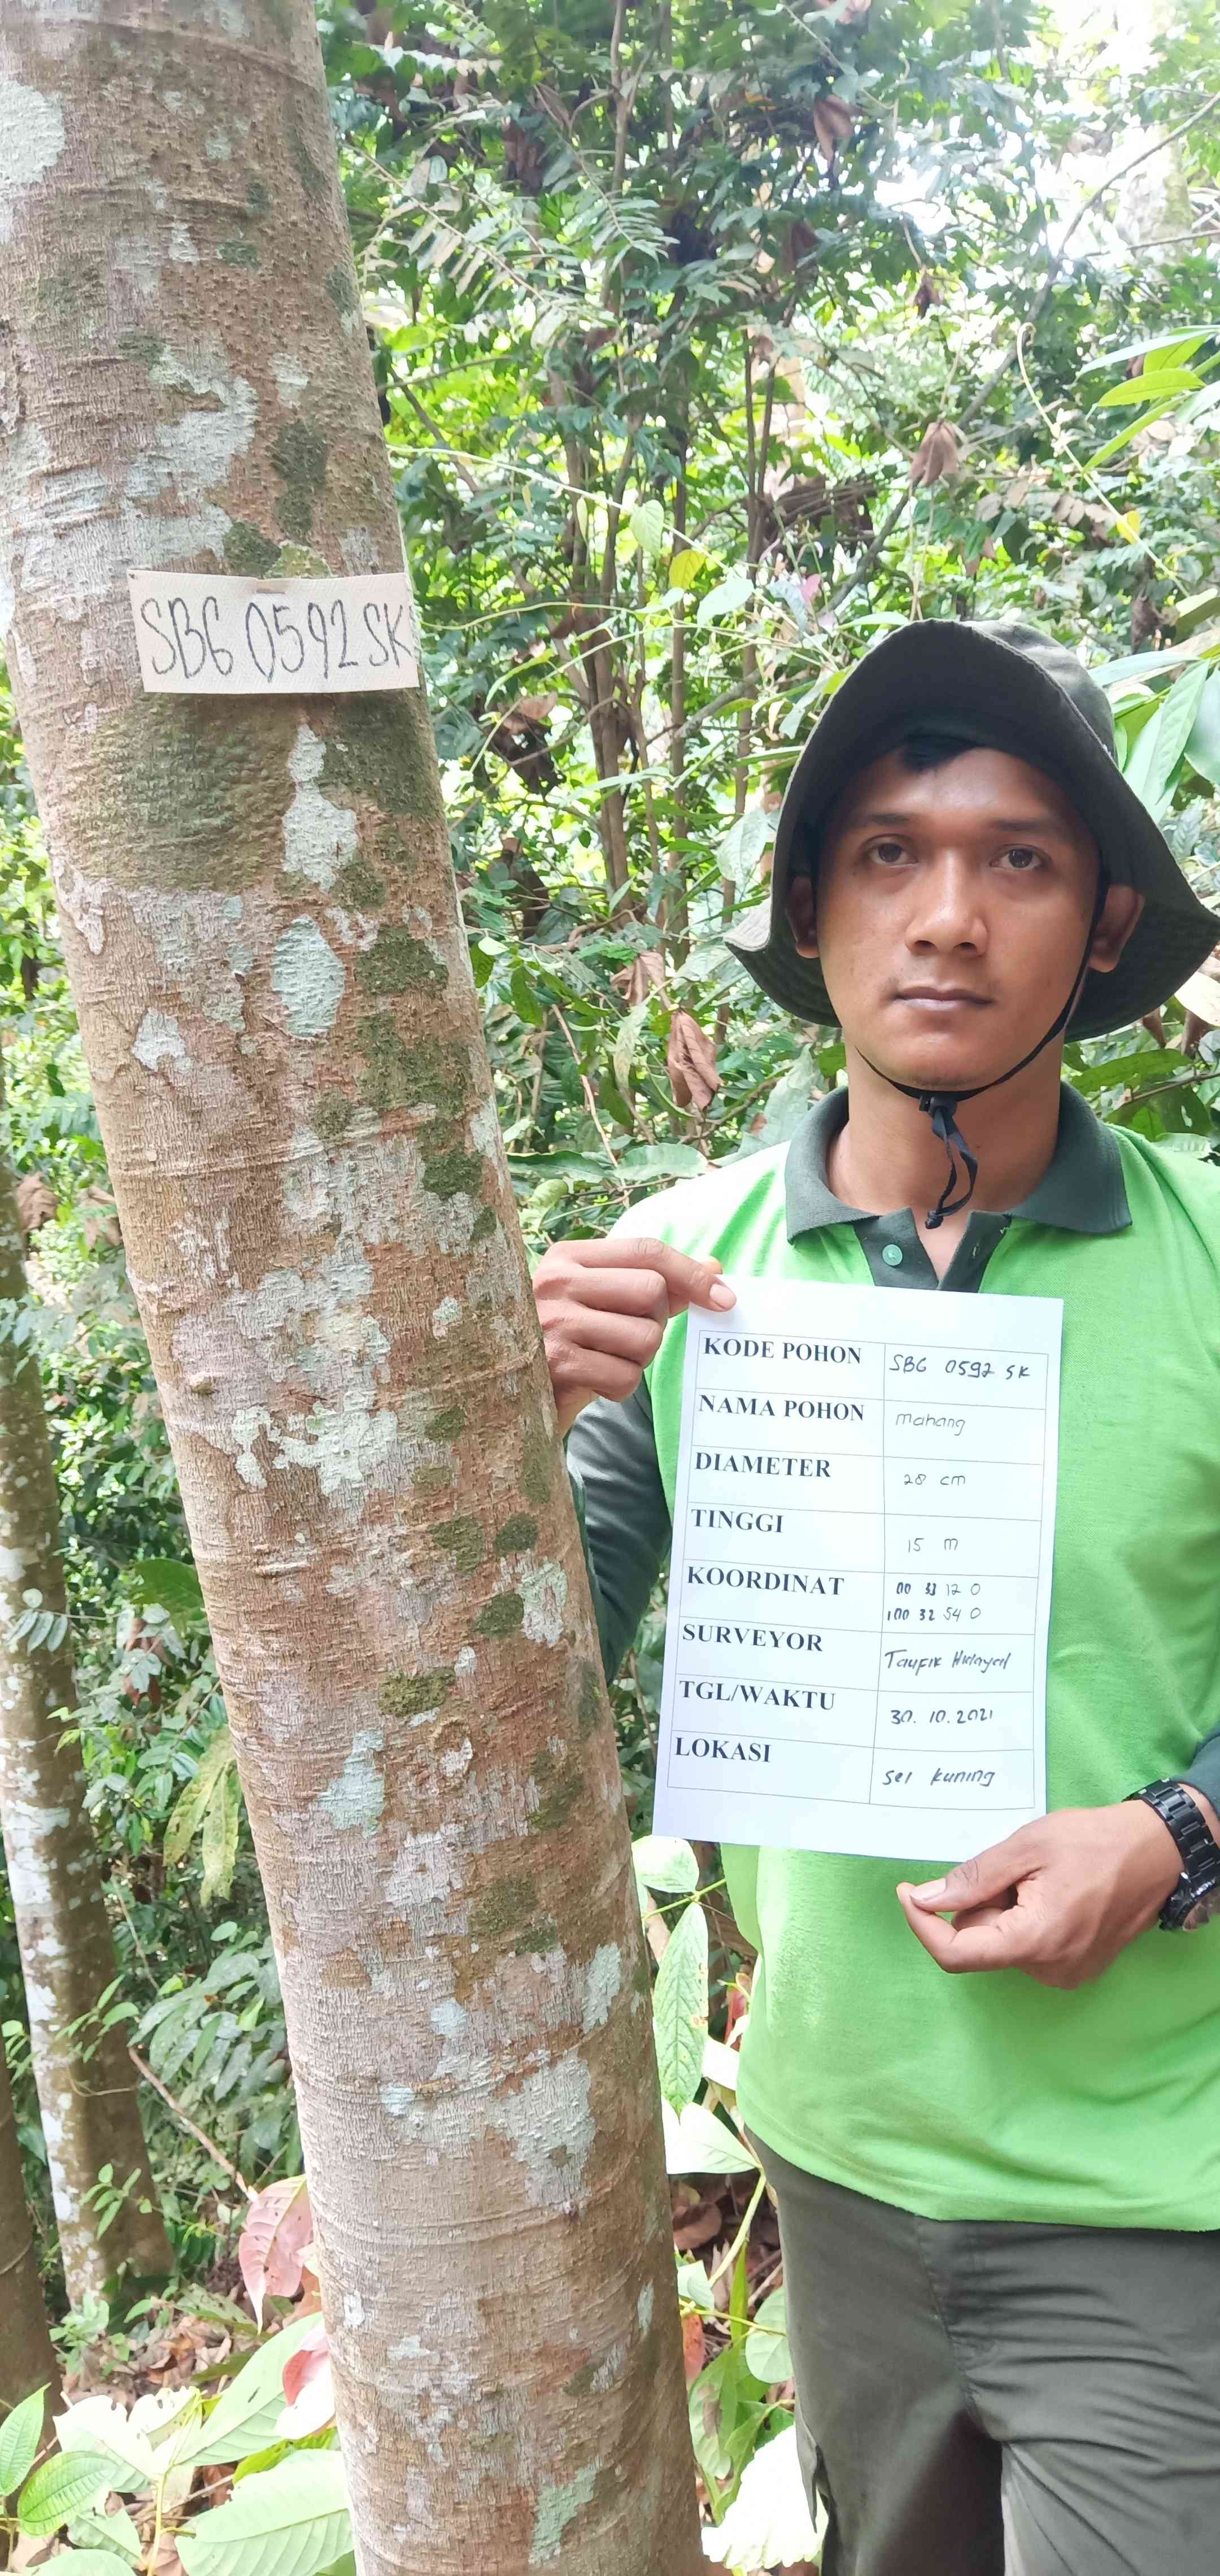 SBG 0592 SK
KODE POHON SBG 0592 SK
NAMA POHON mahang
DIAMETER 28 cm
TINGGI 15 m
KOORDINAT 00 33 12 0
100 32 54 0
SURVEYOR Taufik Hidayat
TGL/WAKTU 30.10.2021
LOKASI sei kuning